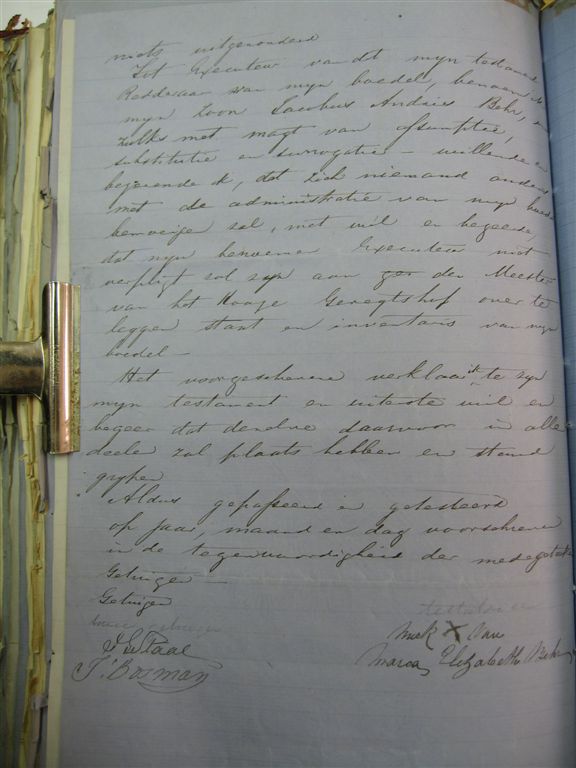 niets uitgezonderd
Tot Executeur van dit mijn testament
Redderaar van mijn boedel, benoem ik
mijn zoon Jacobus Andries Behr, en
zulks met magt van assumptie,
substitutie en surrogatie – willende en
begeerende ik, dat zich niemand anders
met de administratie van mijn boedel
bemoeije sal, met wil en begeerte
dat mijn benoemen Executeur niet
verpligt sal zyn aan den Meester
van het Hooge Geregtshof over te
leggen staat en inventaris van mijn
boedel –
Het voorgeschrevene verklaar ik te zijn
mijn testament en uiterste wil en
begeer dat dezelve daarvoor in alle
deele zal plaats hebben en stand
grypen
Aldus gepasseerd en getesteerd
op jaar, maand en dag voorschreven
in de tegenwoordigheid der medegetekende
Getuigen –
Getuigen
testatrice
merk X van
Maria Elizabeth Behr
J Bosman